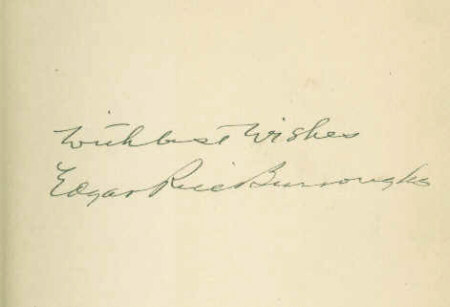 With best Wishes
Edgar Rice Burroughs